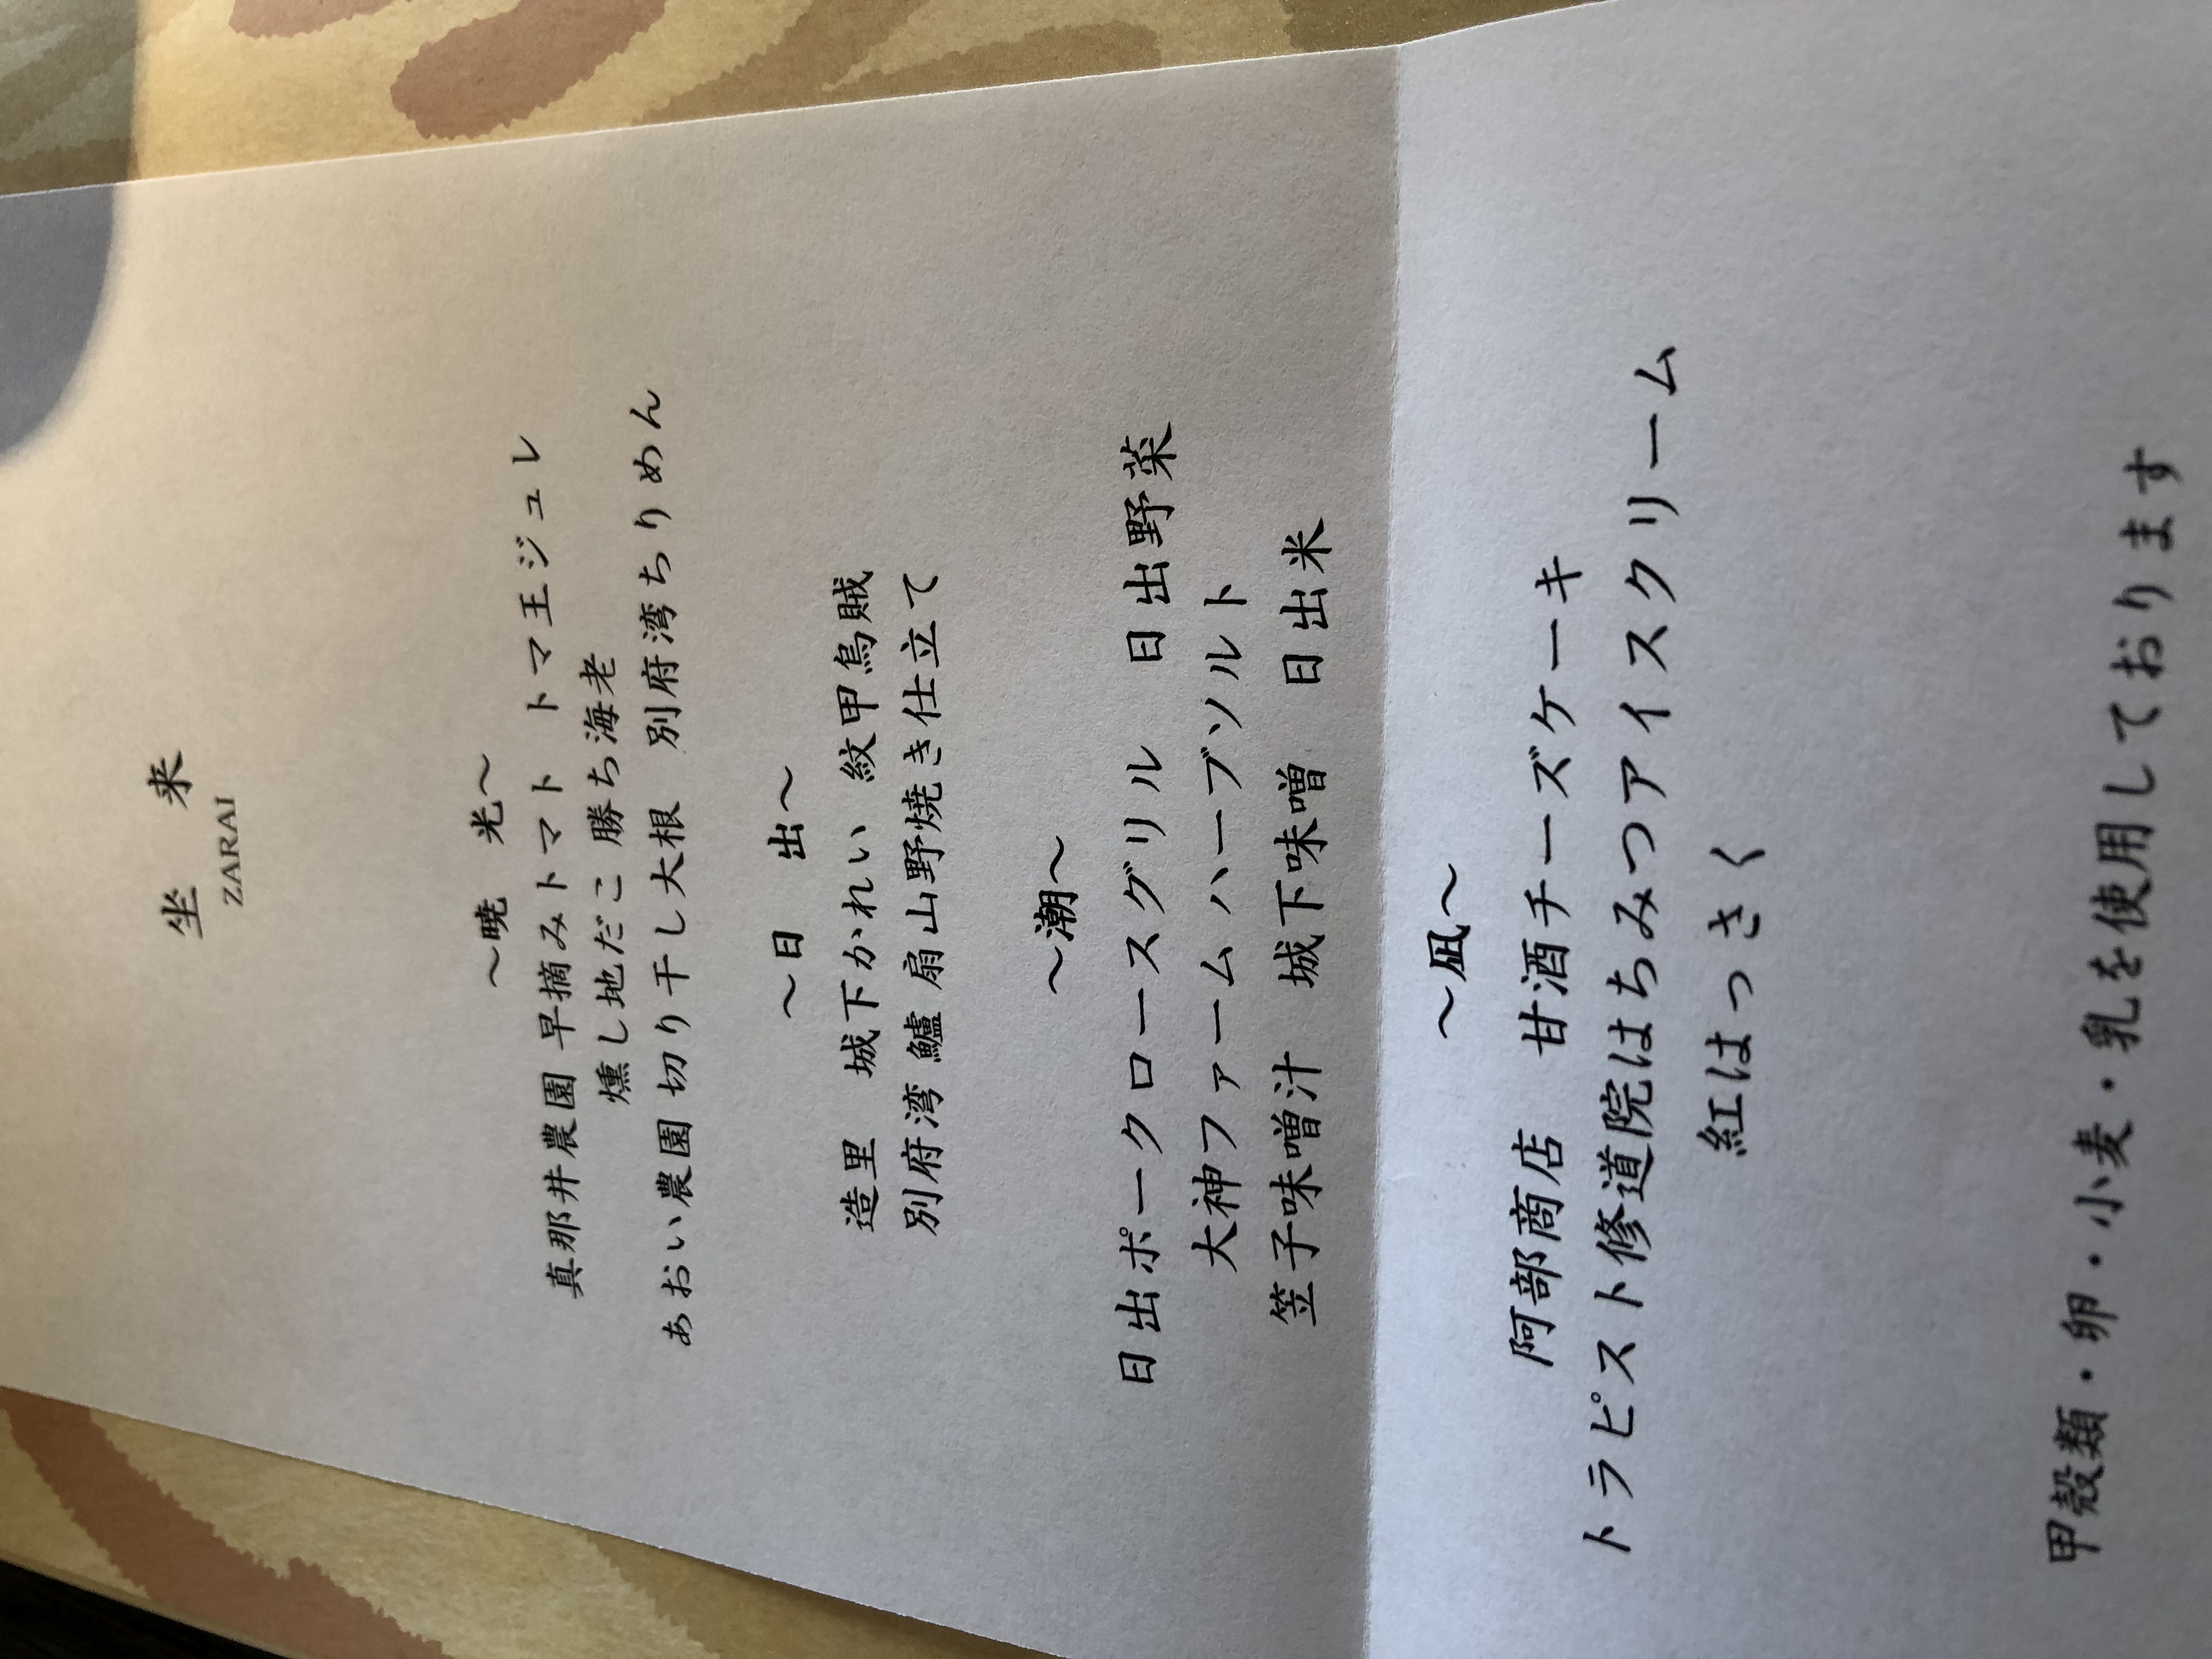 坐　来
ZARAI
～暁　光～
真那井農園 早摘みトマト　トマ王ジュレ
燻し地だこ 勝ち海老
あおい農園 切り干し大根　別府湾ちりめん
～日　出～
造里　城下かれい　紋甲烏賊
別府湾 鱸 扇山野焼き仕立て
～潮～
日出ポークロースグリル　日出野菜
大神ファームハーブソルト
笠子味噌汁　城下味噌　日出米
～凪～
阿部商店　甘酒チーズケーキ
トラピスト修道院はちみつアイスクリーム
紅はっさく
甲殻類・卵・小麦・乳を使用しております